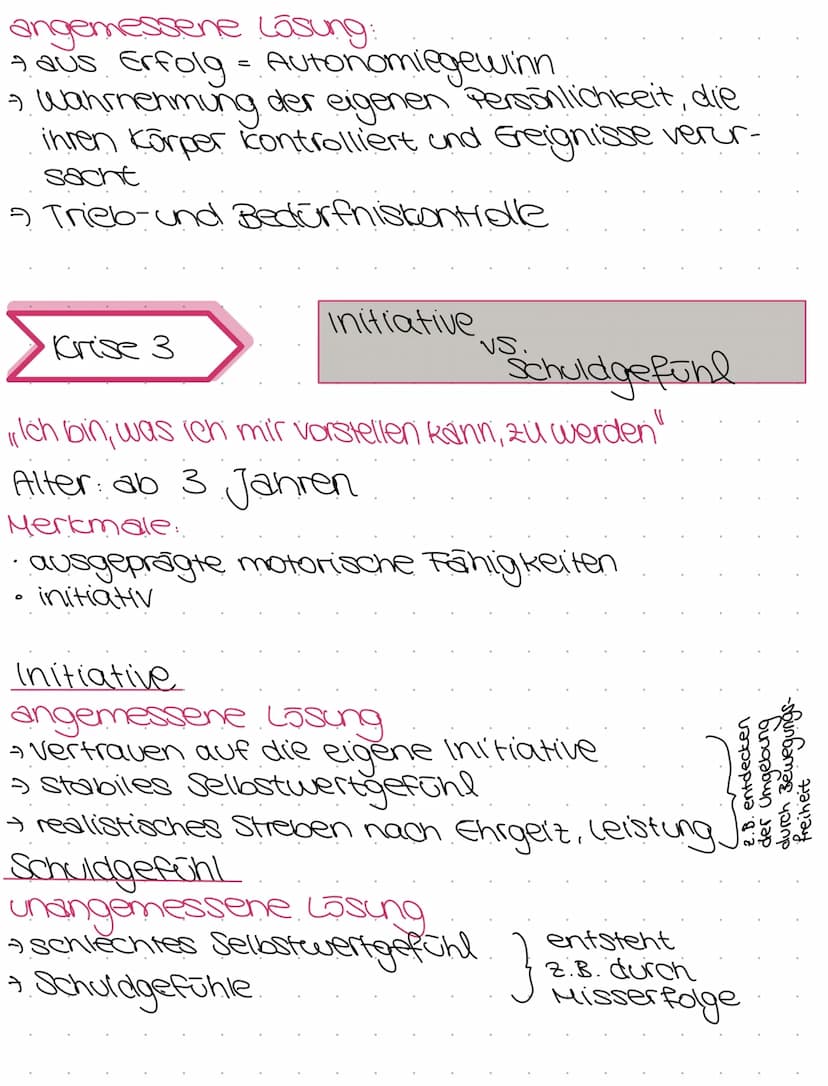 angemessene Lösung:
→ aus Erfolg = Autonomiegewinn
→ Wahrnehmung der eigenen Persönlichkeit, die
ihren Körper kontrolliert und Ereignisse verur-
sacht
→ Trieb- und Bedürfniskontrolle
Krise 3
Initiative
vs.
Schuldgefühl
„Ich bin, was ich mir vorstellen kann, zu werden"
Alter: ab 3 Jahren
Merkmale:
· ausgeprägte motorische Fähigkeiten
• initiativ
Initiative
angemessene Lösung
→ Vertrauen auf die eigene Initiative
→ stabiles Selbstwertgefühl
→ realistisches Streben nach Ehrgeiz, Leistung
z.B. entdecken
der Umgebung
durch Bewegungs-
freiheit
Schuldgefühl
unangemessene Lösung
→ schlechtes Selbstwertgefühl
→ Schuldgefühle
entsteht
z.B. durch
Misserfolge